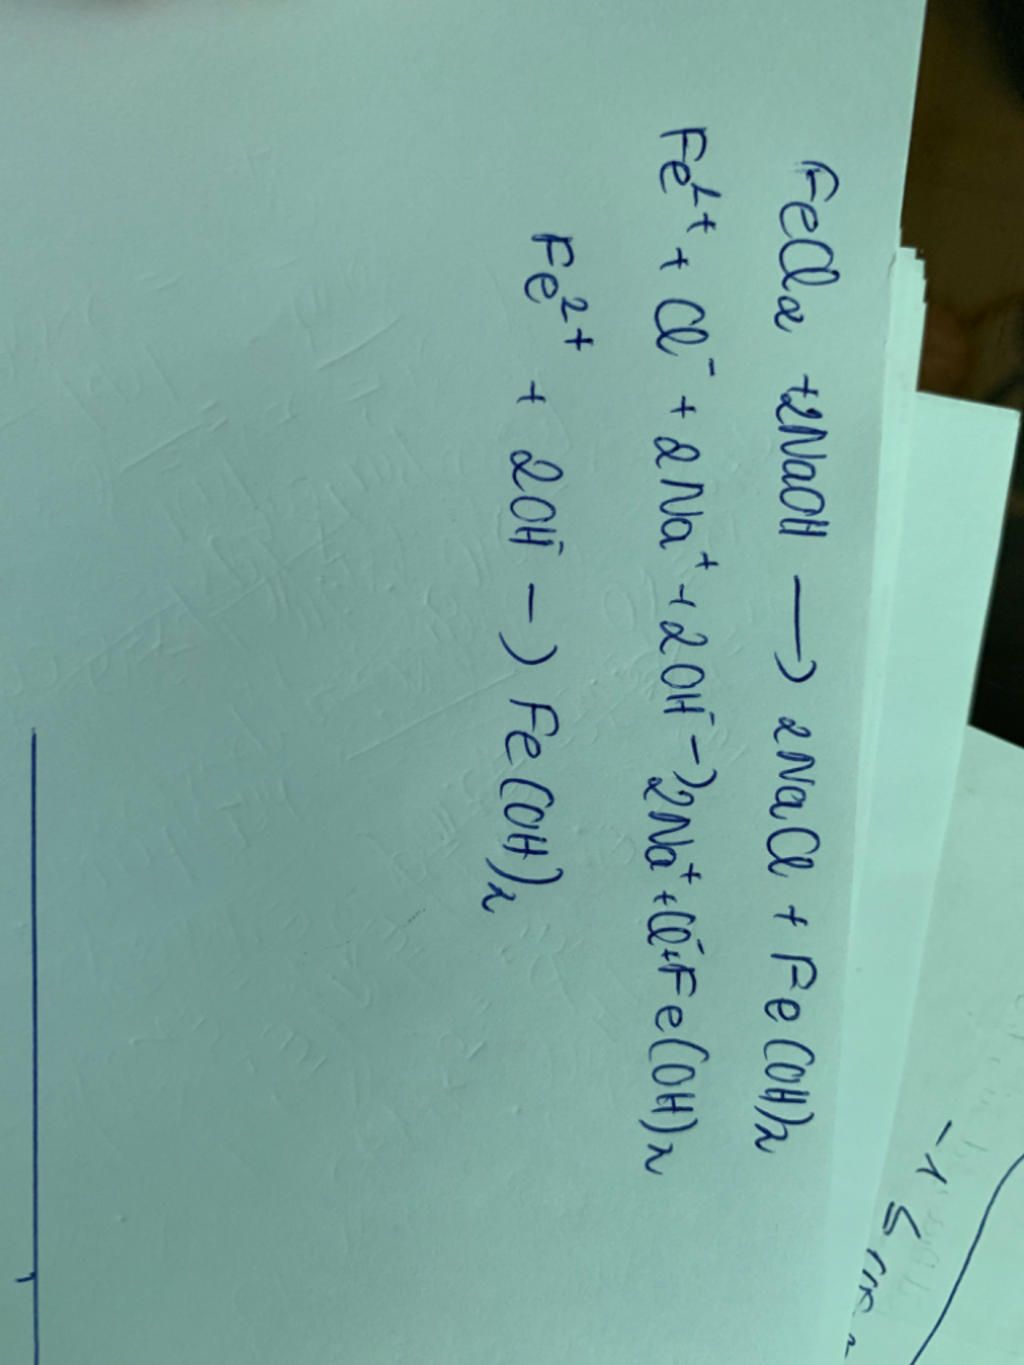 FeCl₂ +2NaOH —> 2NaCl + Fe(OH)₂
Fe²⁺ + Cl⁻ + 2Na⁺ + 2OH⁻ -> 2Na⁺ + Cl⁻ + Fe(OH)₂
Fe²⁺ + 2OH⁻ -> Fe(OH)₂